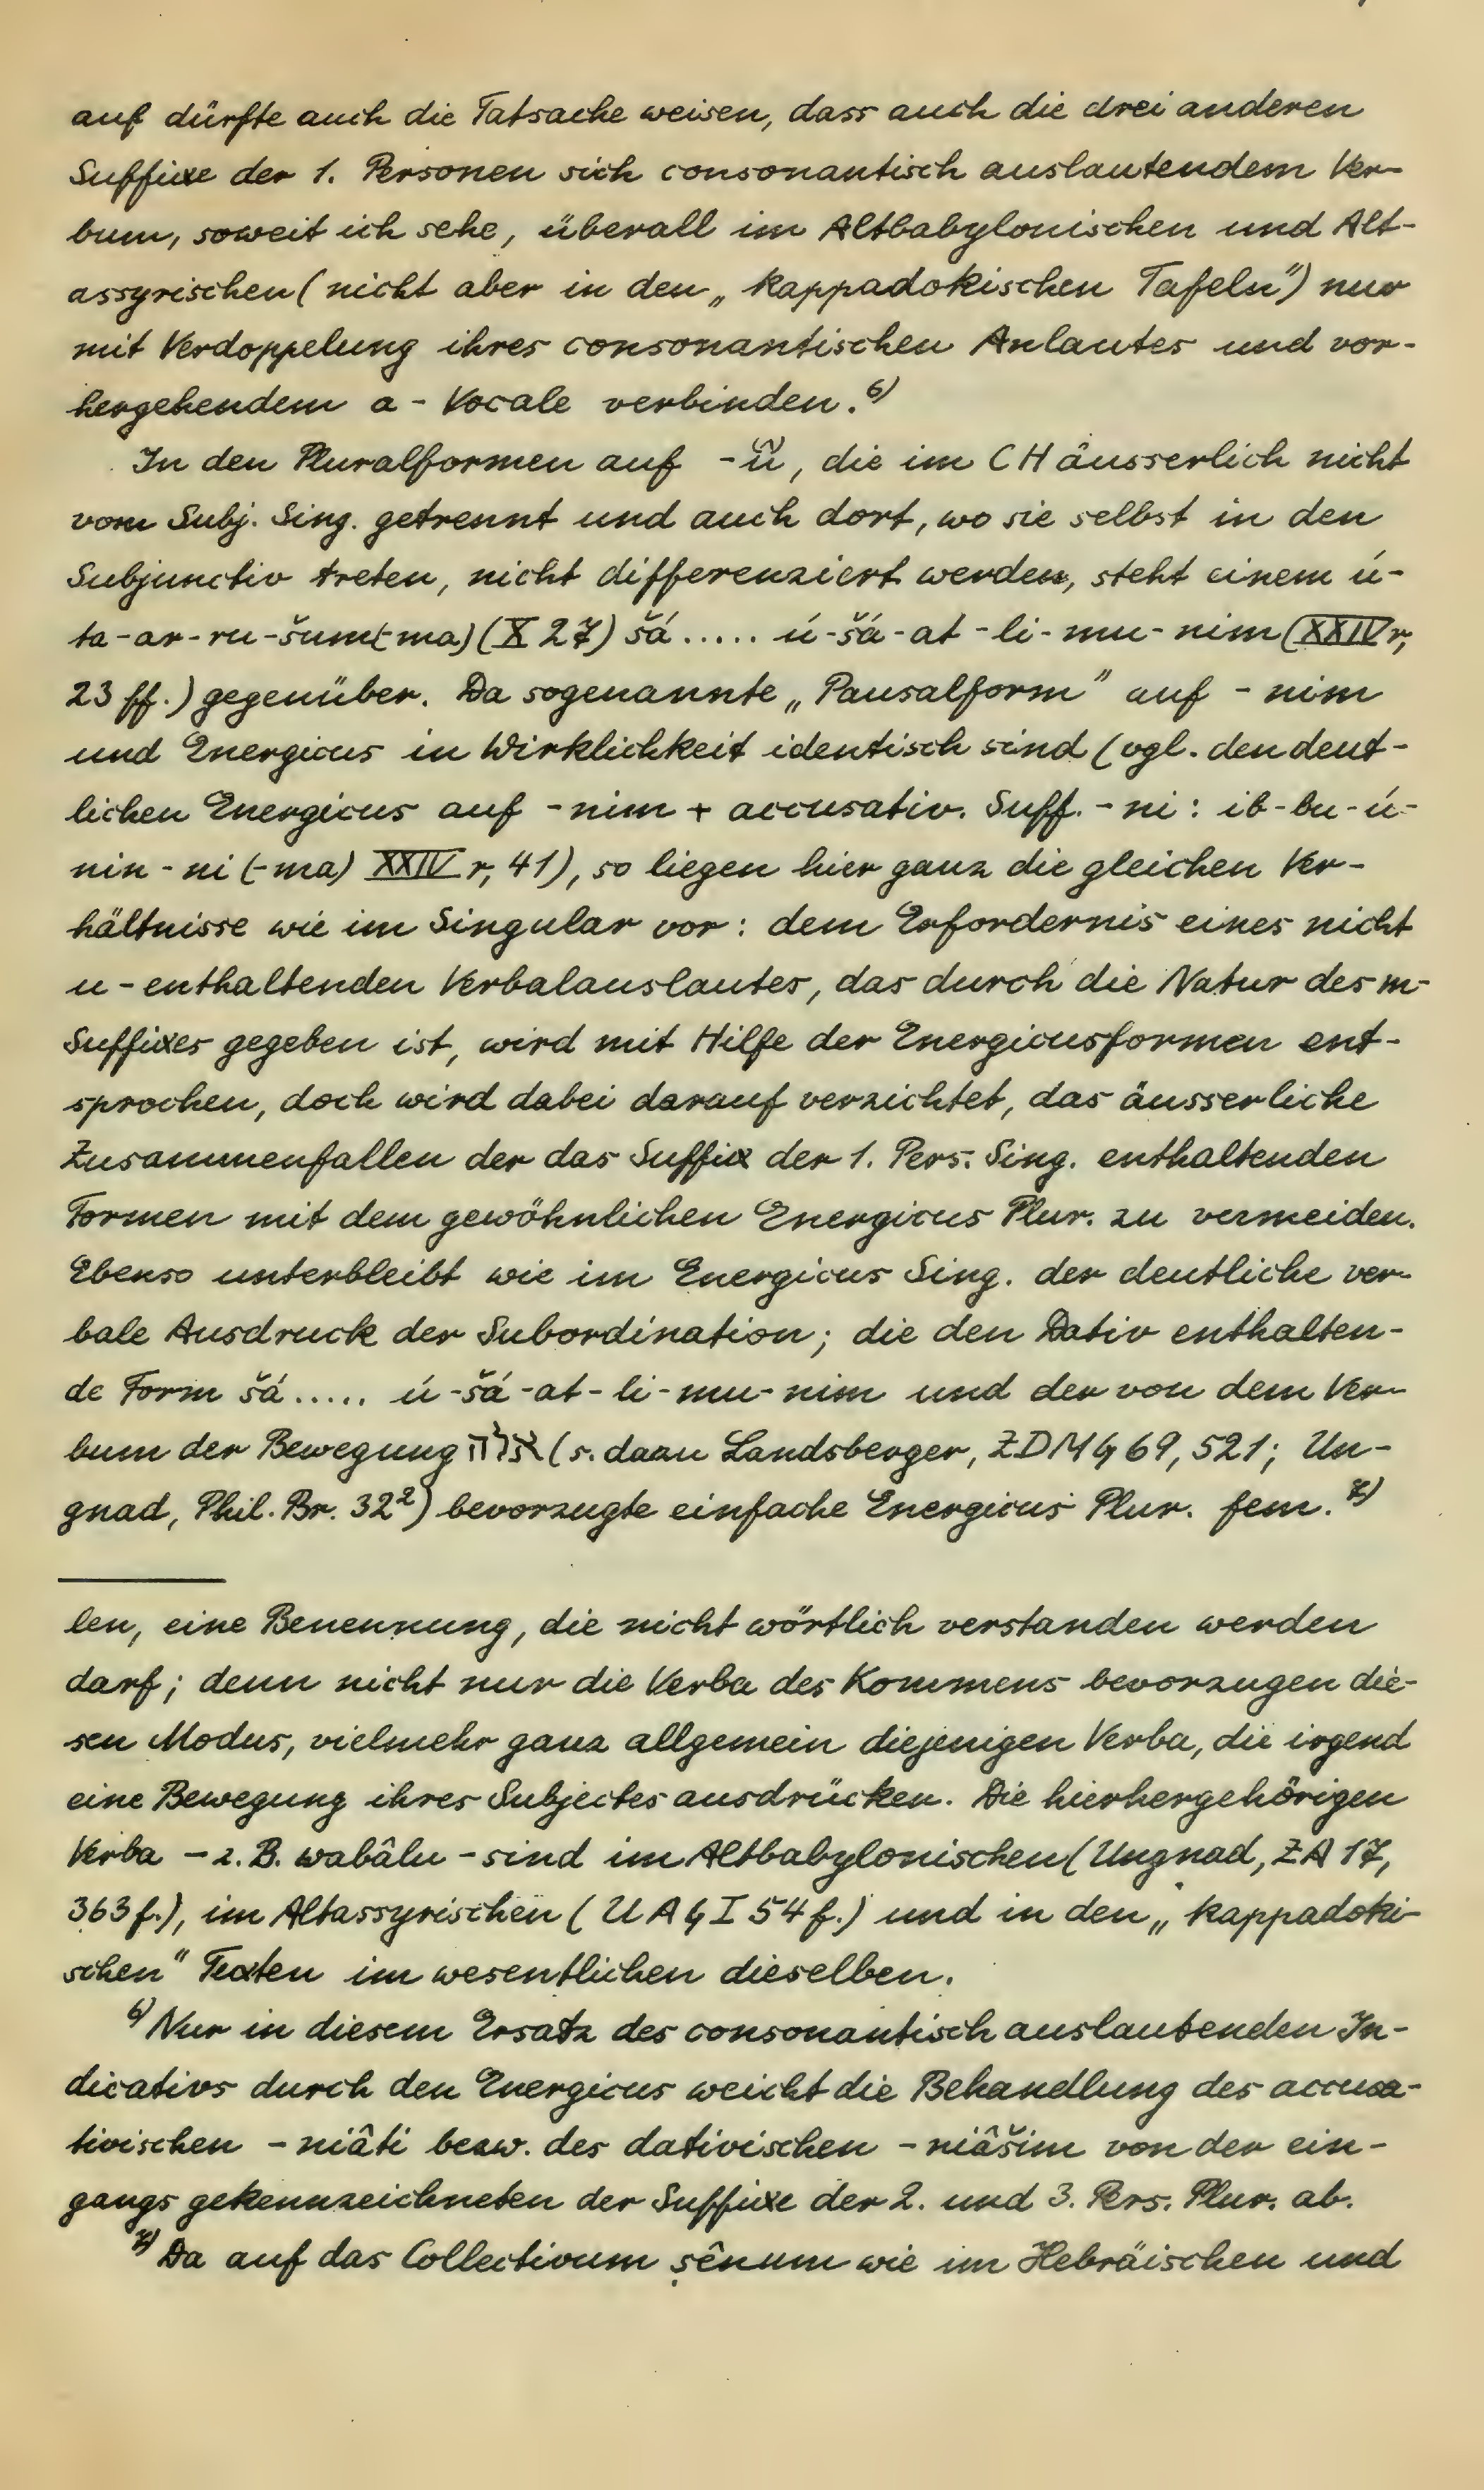 auf dürfte auch die Tatsache weisen, dass auch die drei anderen
Suffixe der 1. Personen sich consonantisch auslautendem Ver-
bum, soweit ich sehe, überall im Altbabylonischen und Alt-
assyrischen (nicht aber in den „kappadokischen Tafeln") nur
mit Verdoppelung ihres consonantischen Anlautes und vor-
hergehendem a-Vocale verbinden.⁶⁾
In den Pluralformen auf -û, die im CH äusserlich nicht
vom Subj. Sing. getrennt und auch dort, wo sie selbst in den
Subjunctiv treten, nicht differenziert werden, steht einem ú-
ta-ar-ru-šum(-ma) (X 27) šá ..... ú-šá-at-li-mu-nim (XXIV r,
23 ff.) gegenüber. Da sogenannte „Pausalform" auf -nim
und Energicus in Wirklichkeit identisch sind (vgl. den deut-
lichen Energicus auf -nim + accusativ. Suff. -ni: ib-bu-ú-
nin-ni (-ma) XXIV r, 41), so liegen hier ganz die gleichen Ver-
hältnisse wie im Singular vor: dem Erfordernis eines nicht
u-enthaltenden Verbalauslautes, das durch die Natur des m-
Suffixes gegeben ist, wird mit Hilfe der Energicusformen ent-
sprochen, doch wird dabei darauf verzichtet, das äusserliche
Zusammenfallen der das Suffix der 1. Pers. Sing. enthaltenden
Formen mit dem gewöhnlichen Energicus Plur. zu vermeiden.
Ebenso unterbleibt wie im Energicus Sing. der deutliche ver-
bale Ausdruck der Subordination; die den Dativ enthalten-
de Form šá ..... ú-šá-at-li-mu-nim und der von dem Ver-
bum der Bewegung (s. dazu Landsberger, ZDMG 69, 521; Un-
gnad, Phil. Br. 32²) bevorzugte einfache Energicus Plur. fem.⁷⁾
len, eine Benennung, die nicht wörtlich verstanden werden
darf; denn nicht nur die Verba des Kommens bevorzugen die-
sen Modus, vielmehr ganz allgemein diejenigen Verba, die irgend
eine Bewegung ihres Subjectes ausdrücken. Die hierhergehörigen
Verba – z. B. wabâlu – sind im Altbabylonischen (Ungnad, ZA 17,
363 f.), im Altassyrischen (UAG I 54 f.) und in den „kappadoki-
schen" Texten im wesentlichen dieselben.
⁶⁾ Nur in diesem Ersatz des consonantisch auslautenden In-
dicativs durch den Energicus weicht die Behandlung des accusa-
tivischen -niâti bezw. des dativischen -niâšim von der ein-
gangs gekennzeichneten der Suffixe der 2. und 3. Pers. Plur. ab.
⁷⁾ Da auf das Collectivum ṣênum wie im Hebräischen und